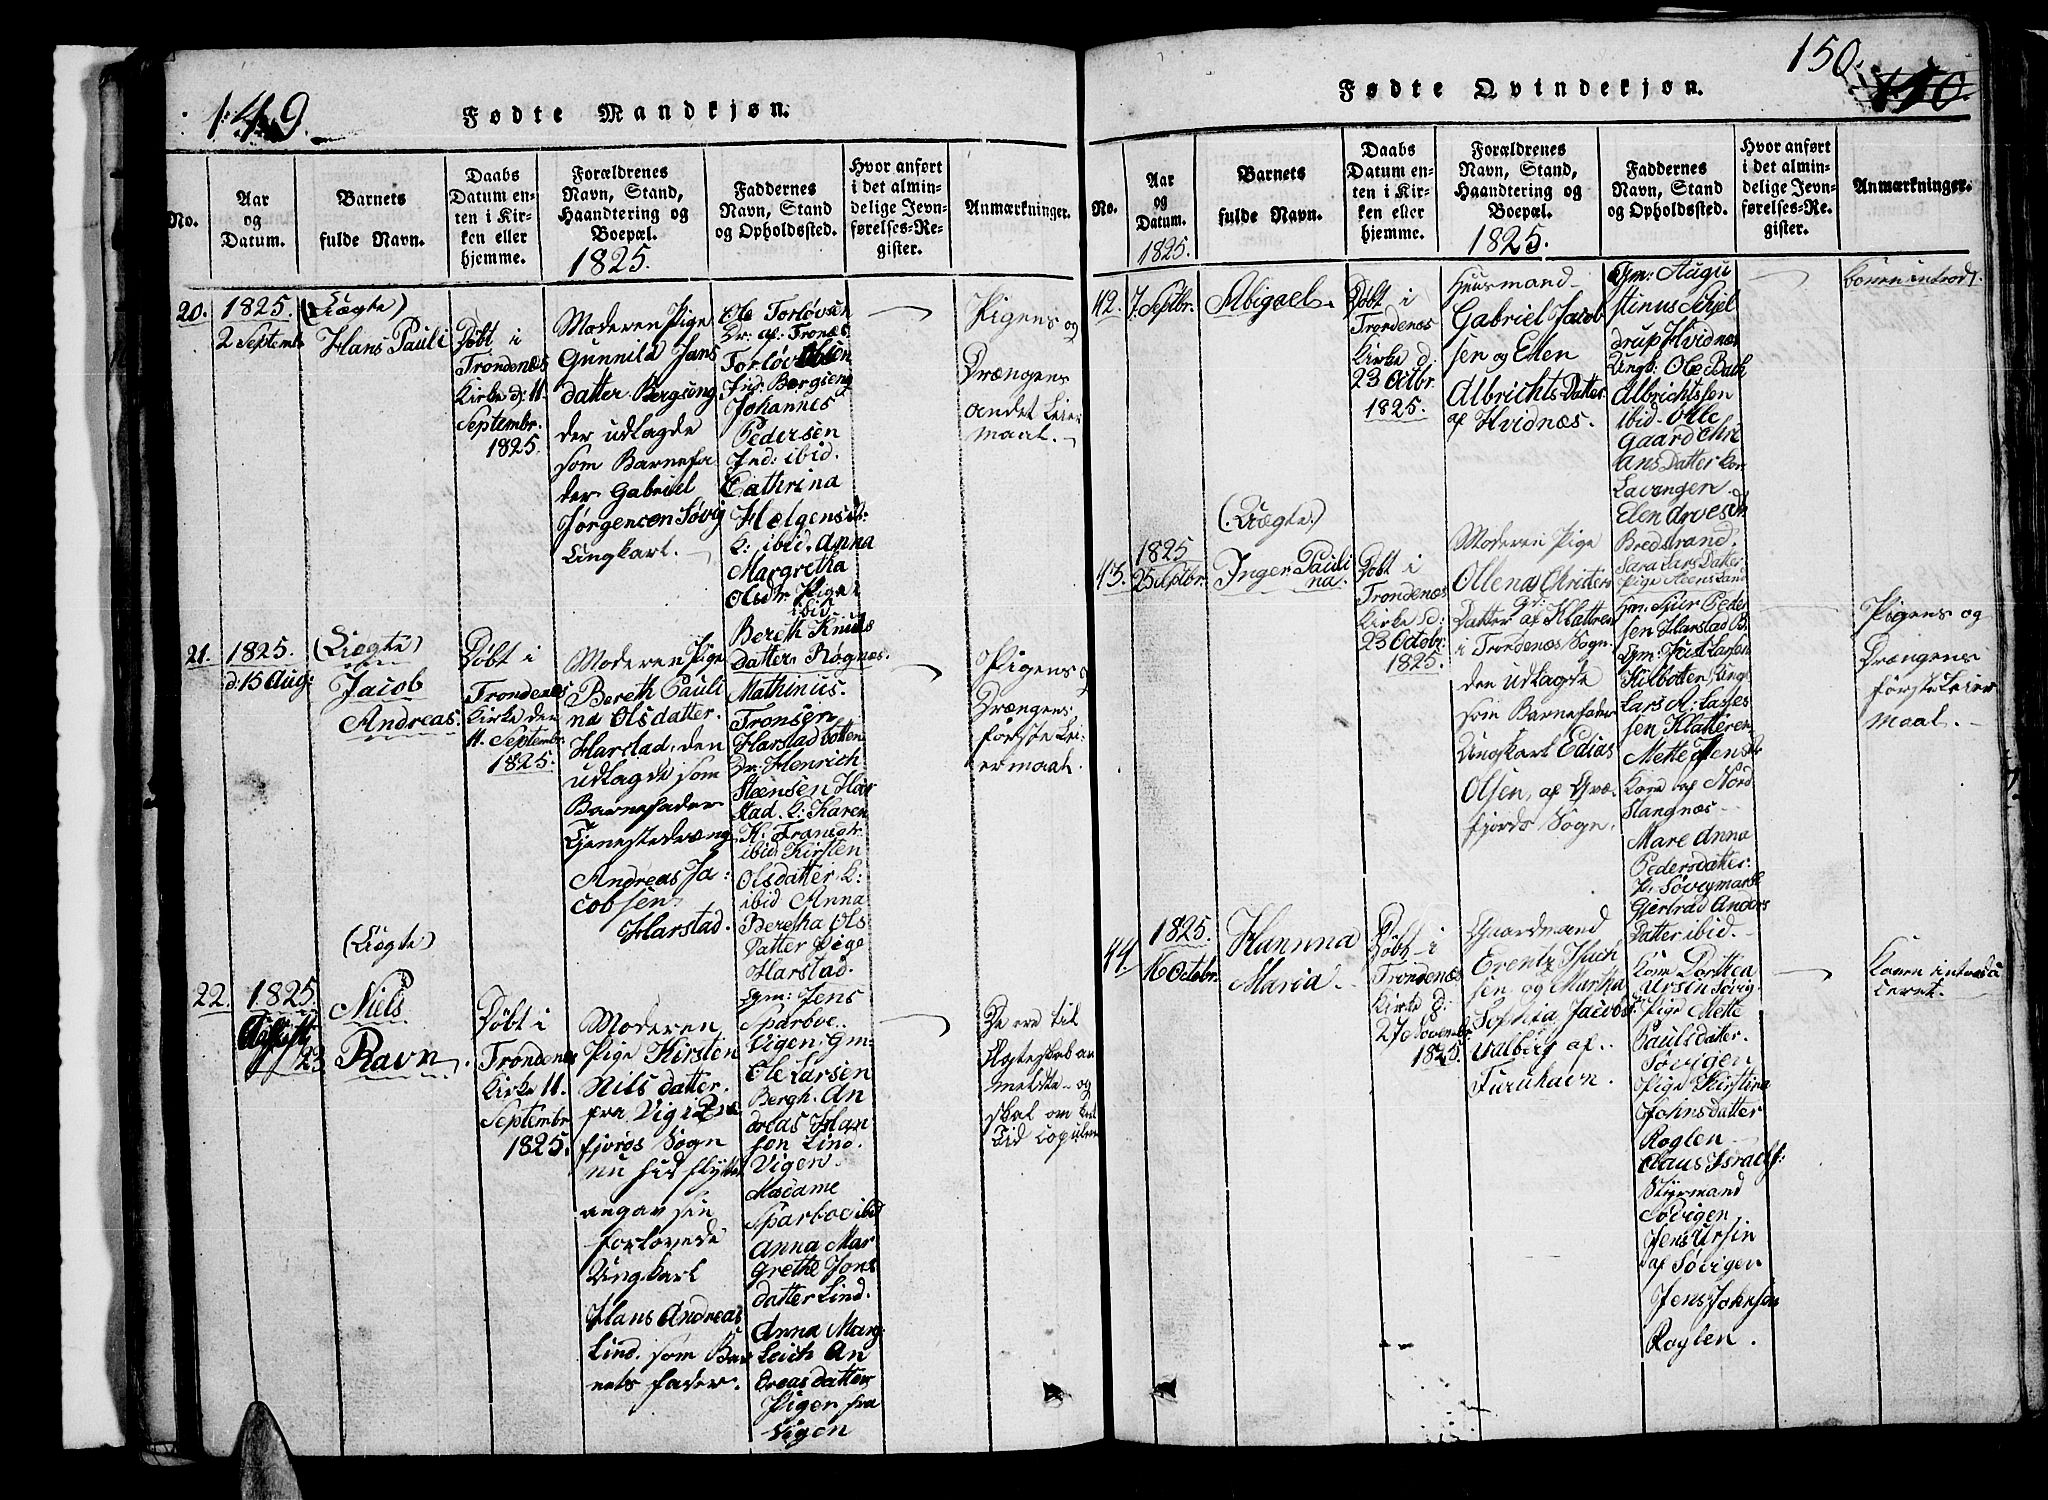 149.
Fødte Mandkjøn.
No.
Aar
og
Datum.
Barnets
fulde Navn.
Daabs
Datum en-
ten i Kir-
ken eller
hjemme.
Forældrenes
Navn, Stand,
Haandtering og
Boepæl.
1825.
Faddernes
Navn, Stand
og Opholdssted.
Hvor anført
i det almin-
delige Jevn-
førelses-Re-
gister.
Anmærkninger.
20.
1825.
2 Septembr
(Uægte)
Hans Pauli
Døbt i
Trondenæs
Kirke d: 11
Septembr.
1825.
Moderen Pige
Gunnild Jans
datter Bergseng
der udlagde
som Barnefa
der Gabriel
Jørgensen Søvig
Ungkarl.
Ole Torløvsen
Dr: af: Tronæs
Torløv Olsen
Ind: Bergseng
Johannes
Pedersen
Ind: ibid.
Cathrina
Helgensdr:
K: ibid. Anna
Margretha
Olsdr Pige
ibid.
Bereth Knuds
datter Røgnæs.
Pigens og
Drængens
andet Leier
maal.
21.
1825.
d: 15 Aug:
(Uægte)
Jacob
Andreas.
Døbt i
Trondenæs
Kirke den
11. Septembr.
1825.
Moderen Pige
Bereth Pauli
na Olsdatter.
Harstad, den
udlagde som
Barnefader
Tjenestedræng
Andreas Ja:
cobsen
Harstad.
Mathinus.
Tronsen
Harstadbotten
Dr: Henrich
Steensen Har
stad. K: Karen
ibid Kirsten
Olsdatter K:
ibid Anna
Beretha Ols
Datter Pige
Harstad.
Pigens og
Drængens
første Lei-
ermaal.
22.
1825.
23
(Uægte)
Niels
Ravn.
Døbt i
Trondenæs
Kirke 11.
Septembr
1825.
Moderen
Pige Kirsten
Nils datter.
fra Vig i Qvæ
fjords Sogn
nu hid flyttet
angav sin
forlovede
Ungkarl
Hans Andreas
Lind. som Bar
nets fader.
Gm: Jens
Sparboe.
Vigen: Gm:
Ole Larsen
Bergh. An
dreas Han
sen Lind.
Vigen.
Madame
Sparboe ibid
Anna Mar
grethe Jons
datter Lind.
Anna Marg:
Leich An
dreas datter
Pigen fra
Vigen
De ere til
Ægteskab an
meldte og
skal om kort
Tid copuleres
150.
Fødte Qvindekjøn.
No.
Aar
og
Datum.
1825.
Barnets
fulde Navn.
Daabs
Datum en-
ten i Kir-
ken eller
hjemme.
Forældrenes
Navn, Stand,
Haandtering og
Boepæl.
1825.
Faddernes
Navn, Stand
og Opholdssted.
Hvor anført
i det almin-
delige Jevn-
førelses-Re-
gister.
Anmærkninger.
42.
7. Septbr.
Abigael.
Døbt i
Trondenæs
Kirke d:
23 Octbr.
1825.
Huusmand
Gabriel Jacob
sen og Elen
Albrichts Datter
af Hvidnæs.
Gm: Augu
stinus Kjel
drup Hvidnæs
Ungk: Ole Bath
Albrichtssen
ibid. Olle
gaard Chri
ans Datter Kone
Lavangen.
Bredstrand.
Sara Lars Datter
Konen introd.
43.
1825
25 Septbr.
(Uægte)
Inger Pauli
na.
Døbt i
Trondenæs
Kirke d:
23 Octobr.
1825.
Moderen Pige
Ollena Christen
Datter af Klatren
i Trondenæs Sogn.
den udlagde
som Barnefader
Ungkarl Edias
Olsen, af Qvæ
fjords Sogn.
Gm: Siur Peder
sen Harstad B.
Gm: Just Larsen
Kilbotten Ungk:
Lars A: Lasses
sen Klatteren
Mette Jensdr
Kone af Nord
Stangnæs
Mare Anna
Pedersdatter
P: Søvigmark
Gjertrud Anders
Datter ibid.
Pigens og
Drængens
første Leier
maal.
44.
1825.
16 Octobr.
Hannna
Maria.
Døbt i
Trondenæs
Kirke d:
27 Novembr
1825.
Gaardmand
Erentz Isach
sen og Martha
Sophia Jacobs
Valberg af
Furuhavn.
Kone Dorthea
Ursin Søvig.
Pige Mette
Paulsdatter.
Søvigen
Pige Kirstina
Johnsdatter
Roglen
Claus Israels:
Styrmand
Søvigen
Jens Ursin
af Søvigen
Jens Johnsen
Roglen.
Konen introdu
ceret.